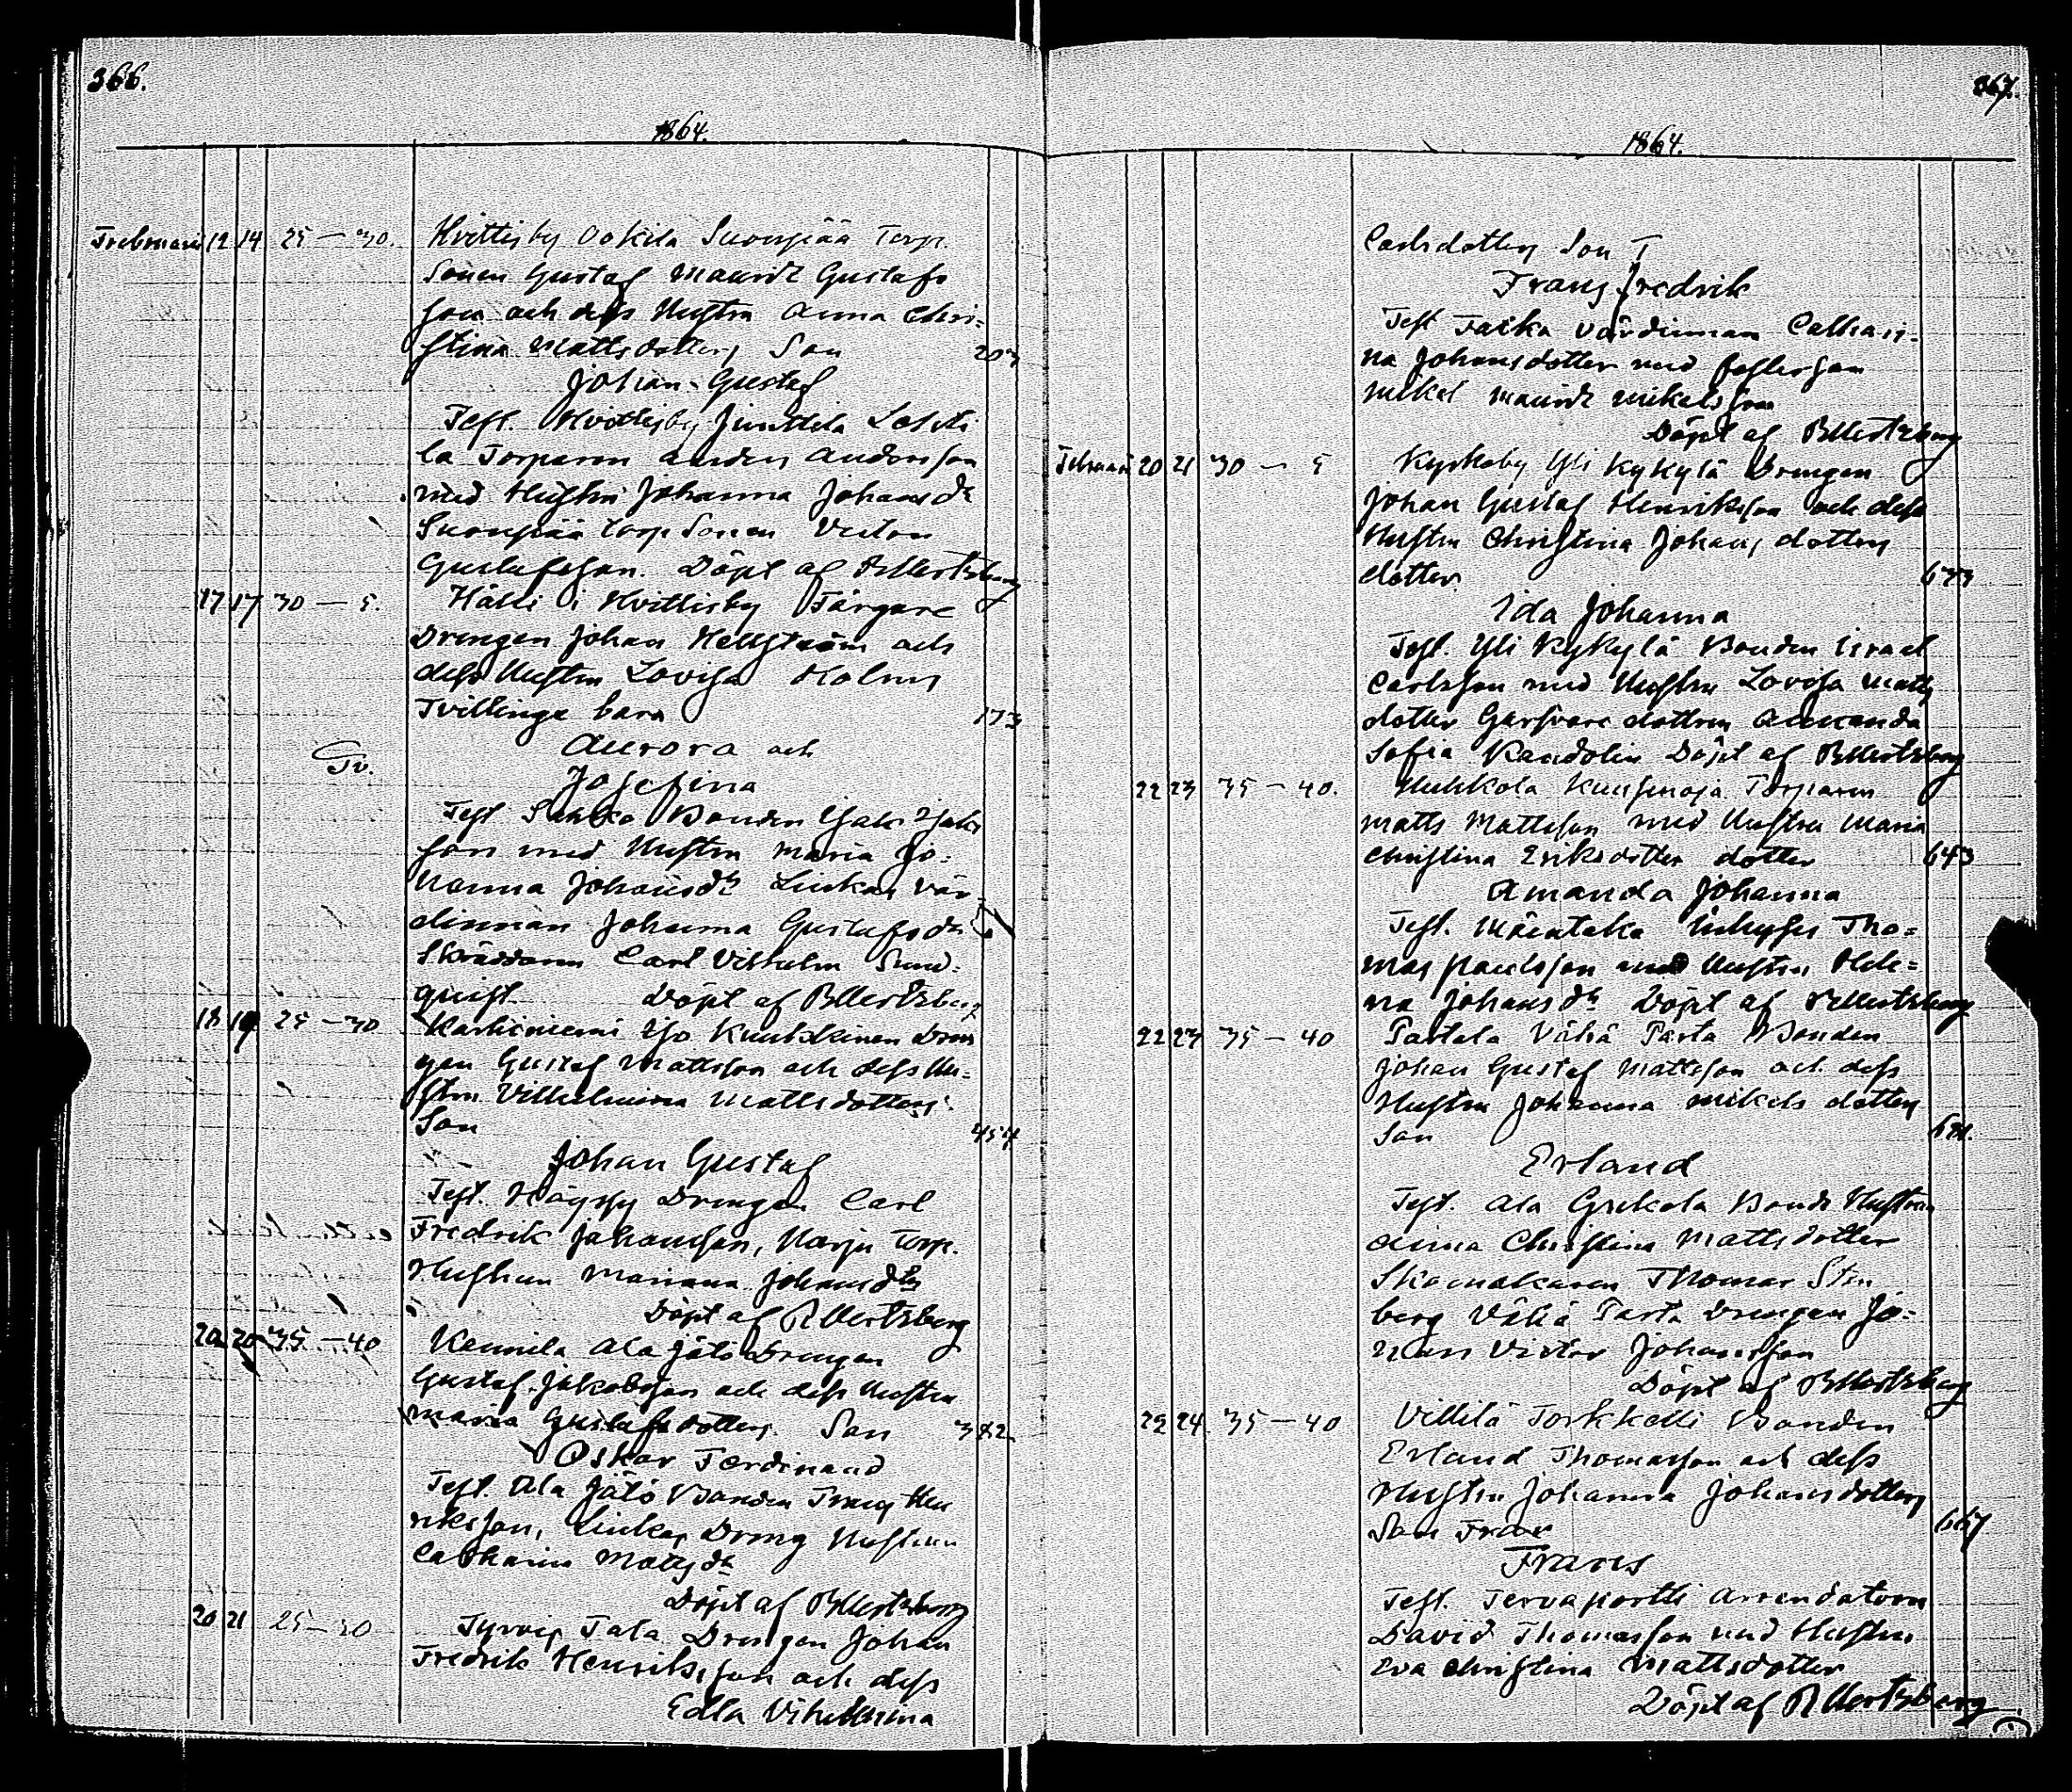 366.
1864.
Februari 12 14 25 — 30. Hvittisby Ookila Suonpää Torp.
Sonen Gustaf Mauritz Gustafs
son och dess Hustru Anna Chri-
stina Mattsdotters Son 203
Johan Gustaf
Test. Hvittisby Junttila Lahti
la Torparen Anders Andersson
med Hustru Johanna Johansdr
Suonpää Torp Sonen Victor
Gustafsson. Döpt af R Mertzberg
17 17 30 — 5. i Hvittisby Färgare
Drengen Johan Hellström och
dess Hustru Lovisa Holms
Tvillinge barn 173
Tv. Aurora och
Josefina
Test Bonden Isak Isaks
son med Hustru Maria Jo-
hanna Johansdr vär
dinnan Johanna Gustafsdr
Skräddaren Carl Vilhelm Sund-
quist Döpt af R Mertzberg
18 19 25 — 30 Karhiniemi Yjo Dren
gen Gustaf Mattsson och dess Hu-
stru Vilhelmina Mattsdotters
Son 454
Johan Gustaf
Test. Drengen Carl
Fredrik Johansson, Harju Torp.
Hustrun Mariana Johansdr
Döpt af R Mertzberg
20 20 35 — 40 Kennilä Ala Jätö Drengen
Gustaf Jakobsson och dess Hustru
Maria Gustafsdotters Son 382
Oskar Ferdinand
Test. Ala Jätö Bonden Frans Hen
riksson, Dreng Hustrun
Catharina Mattsdr
Döpt af R Mertzberg
20 21 25 — 30 Tyrvis Tala Drengen Johan
Fredrik Henriksson och dess
Edla Vilhelmina
367.
1864.
Carlsdotters Son
Frans Fredrik
Test värdinnan Cathari-
na Johansdotter med fosterson
Mikel Mauritz Mikelsson
Döpt af R Mertzberg
Februari 20 21 30 — 5 Kyrkoby Yli Kykylä Drengen
Johan Gustaf Henriksson och dess
Hustru Christina Johans dotters
dotter 673
Ida Johanna
Test. Yli Kykylä Bonden Israel
Carlsson med Hustru Lovisa Matts
dotter Garfvare dottren Amanda
Sofia Randolin Döpt af R Mertzberg
22 23 35 — 40. Huhkola Torparen
Matts Mattsson med Hustru Maria
Christina Eriksdotter dotter 643
Amanda Johanna
Test. Mäentaka Inhyses Tho-
mas Paulsson med Hustru Hele-
na Johansdr Döpt af R Mertzberg
22 23 35 — 40 Partala Vähä Parta Bonden
Johan Gustaf Mattsson och dess
Hustru Johanna Mikels dotters
Son
Erland
Test. Ala Bonde Hustrun
Anna Christina Mattsdotter
Skomakaren Thomas Sten
berg Vähä Parta Drengen Jo-
han Victor Johansson
Döpt af R Mertzberg
23 24 35 — 40 Villilä Torkkelli Bonden
Erland Thomasson och dess
Hustru Johanna Johansdotters
Son 667
Frans
Test. Tervaportti Arrendatorn
David Thomasson med Hustru
Eva Christina Mattsdotter
Döpt af R Mertzberg